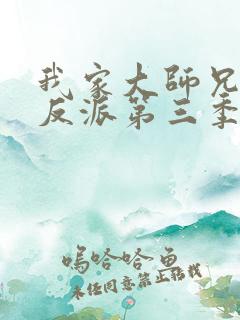 我家大師兄
反派第三季
嗚哈哈魚
未经同意禁止转载